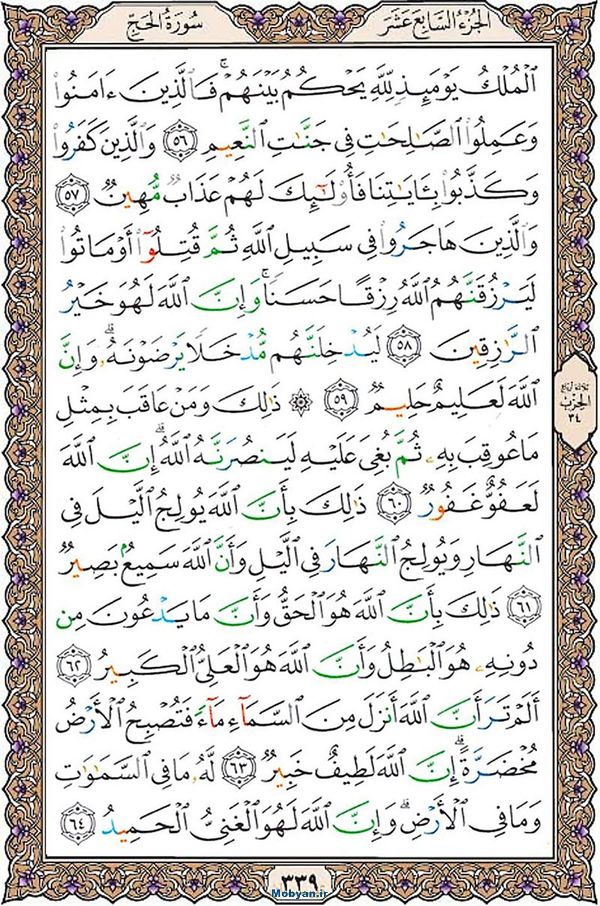 سُورَةُ الحَجّ
الجُزءُ السَّابِعَ عَشَرَ
ٱلْمُلْكُ يَوْمَئِذٍ لِّلَّهِ يَحْكُمُ بَيْنَهُمْ ۚ فَٱلَّذِينَ ءَامَنُوا۟
وَعَمِلُوا۟ ٱلصَّٰلِحَٰتِ فِى جَنَّٰتِ ٱلنَّعِيمِ ٥٦ وَٱلَّذِينَ كَفَرُوا۟
وَكَذَّبُوا۟ بِـَٔايَٰتِنَا فَأُو۟لَٰٓئِكَ لَهُمْ عَذَابٌ مُّهِينٌ ٥٧
وَٱلَّذِينَ هَاجَرُوا۟ فِى سَبِيلِ ٱللَّهِ ثُمَّ قُتِلُوٓا۟ أَوْ مَاتُوا۟
لَيَرْزُقَنَّهُمُ ٱللَّهُ رِزْقًا حَسَنًا ۚ وَإِنَّ ٱللَّهَ لَهُوَ خَيْرُ
ٱلرَّٰزِقِينَ ٥٨ لَيُدْخِلَنَّهُم مُّدْخَلًا يَرْضَوْنَهُۥ ۗ وَإِنَّ
ٱللَّهَ لَعَلِيمٌ حَلِيمٌ ٥٩ ۞ ذَٰلِكَ وَمَنْ عَاقَبَ بِمِثْلِ
مَا عُوقِبَ بِهِۦ ثُمَّ بُغِىَ عَلَيْهِ لَيَنصُرَنَّهُ ٱللَّهُ ۗ إِنَّ ٱللَّهَ
لَعَفُوٌّ غَفُورٌ ٦٠ ذَٰلِكَ بِأَنَّ ٱللَّهَ يُولِجُ ٱلَّيْلَ فِى
ٱلنَّهَارِ وَيُولِجُ ٱلنَّهَارَ فِى ٱلَّيْلِ وَأَنَّ ٱللَّهَ سَمِيعٌۢ بَصِيرٌ
٦١ ذَٰلِكَ بِأَنَّ ٱللَّهَ هُوَ ٱلْحَقُّ وَأَنَّ مَا يَدْعُونَ مِن
دُونِهِۦ هُوَ ٱلْبَٰطِلُ وَأَنَّ ٱللَّهَ هُوَ ٱلْعَلِىُّ ٱلْكَبِيرُ ٦٢
أَلَمْ تَرَ أَنَّ ٱللَّهَ أَنزَلَ مِنَ ٱلسَّمَآءِ مَآءً فَتُصْبِحُ ٱلْأَرْضُ
مُخْضَرَّةً ۗ إِنَّ ٱللَّهَ لَطِيفٌ خَبِيرٌ ٦٣ لَّهُۥ مَا فِى ٱلسَّمَٰوَٰتِ
وَمَا فِى ٱلْأَرْضِ ۗ وَإِنَّ ٱللَّهَ لَهُوَ ٱلْغَنِىُّ ٱلْحَمِيدُ ٦٤
ثلاثة أرباع
الحزب
٣٤
٣٣٩
Mobyan.ir